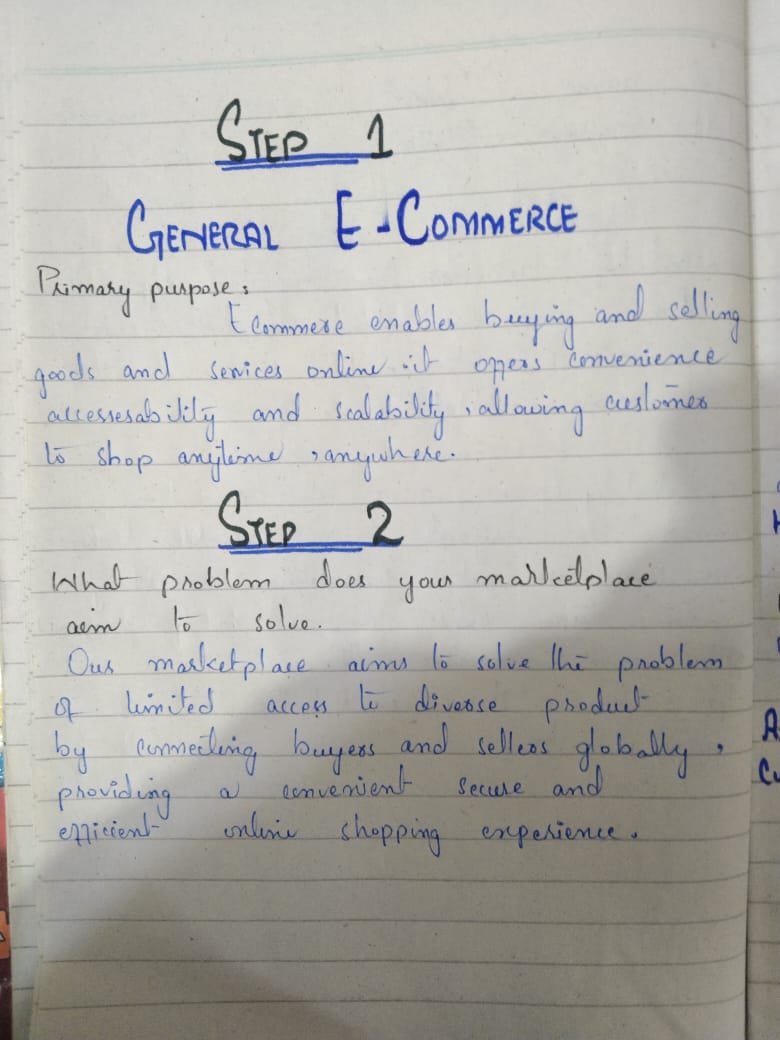 STEP 1
GENERAL E-COMMERCE
Primary purpose:
Ecommere enables buying and selling
goods and services online .it offers convenience
accessesability and scalability , allowing customer
to shop anytime , anywhere.
STEP 2
What problem does your marketplace
aem to solve.
Our marketplace aims to solve the problem
of limited access to diverse product
by connecting buyers and sellers globally ,
providing a convenient secure and
efficient online shopping experience.